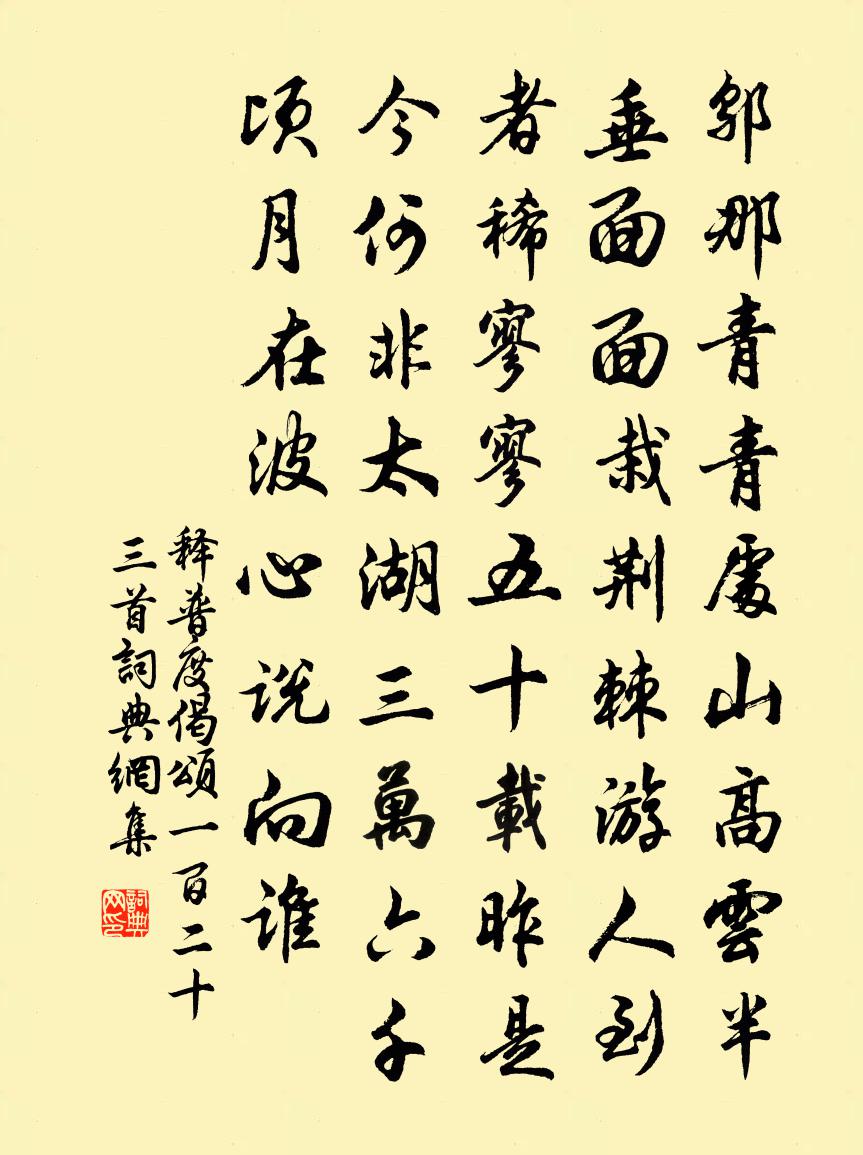 那青青處山高雲半
垂面面栽荆棘游人到
者稀寥寥五十載昨是
今何非太湖三萬六千
顷月在波心说向谁
释普度偈頌一百二十
三首詞典網集
詞典网印